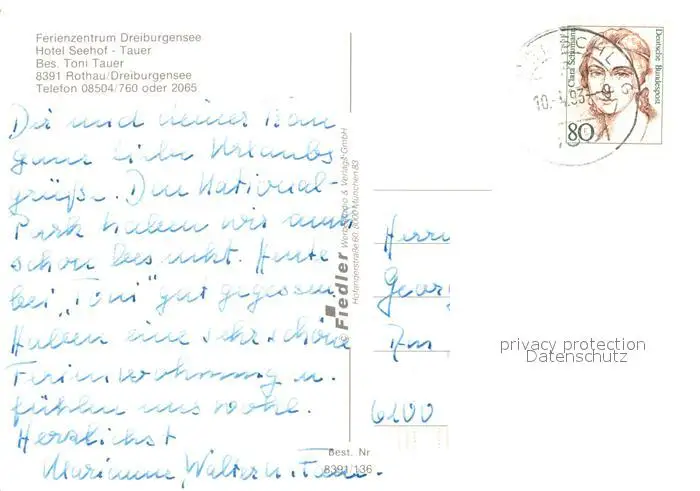 Ferienzentrum Dreiburgensee
Hotel Seehof - Tauer
Bes. Toni Tauer
8391 Rothau/Dreiburgensee
Telefon 08504/760 oder 2065
Dir und deiner Frau
ganz liebe Urlaubs
grüße. Den National-
Park haben wir auch
schon besucht. Heute
bei "Toni" gut gegessen
Haben eine sehr schöne
Ferienwohnung u.
fühlen uns wohl.
Herzlichst
Marianne, Walter u. Fam.
Fiedler Werbe, Foto & Verlags-GmbH
Hofangerstraße 60, 8000 München 83
Best. Nr.
8391/136
Clara Schumann
Deutsche Bundespost
80
10.-4.93-9
Herrn
Georg
Am
6200
privacy protection
Datenschutz